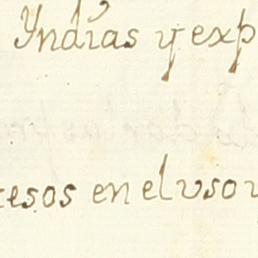 Yndias y exp
cesos en el uso y